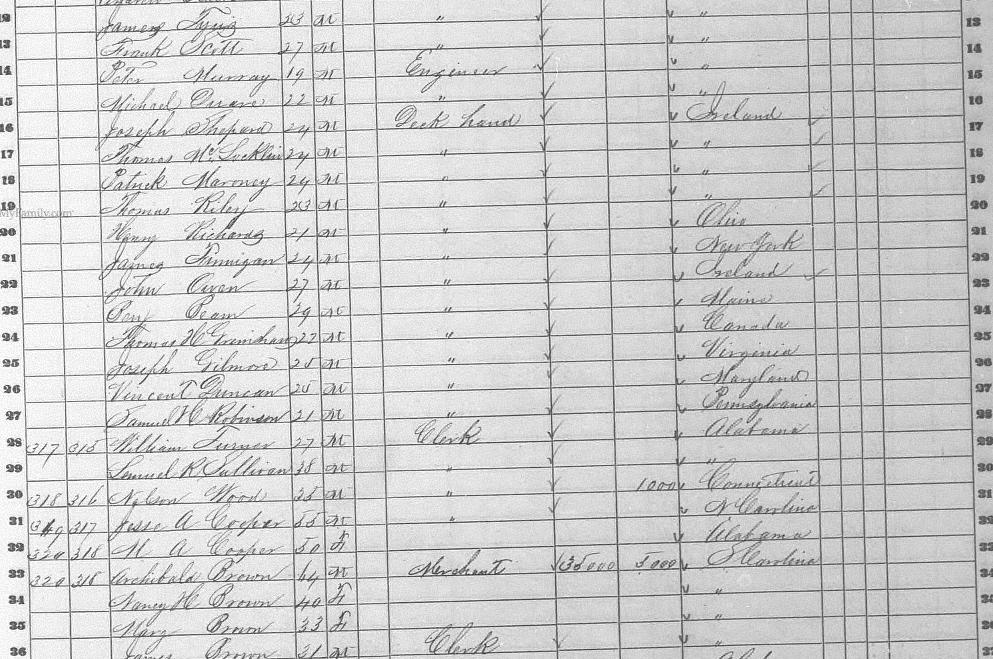 12 James 23 M " ✓ ✓ " 13
13 Frank Scott 27 M " ✓ ✓ " 14
14 Peter Murray 19 M Engineer ✓ ✓ " 15
15 Michael 22 M " ✓ " 16
16 Joseph Shepard 24 M Deck hand ✓ ✓ Ireland ✓ 17
17 Thomas McLocklin 24 M " ✓ ✓ " 18
18 Patrick Maroney 29 M " ✓ ✓ " ✓ 19
19 Thomas Riley 23 M " ✓ ✓ " ✓ 20
MyFamily.com
20 Henry Richards 21 M " ✓ ✓ Ohio 21
21 James Finnigan 24 M " ✓ ✓ New York 22
22 John Owen 27 M " ✓ ✓ Ireland ✓ 23
23 Ben Beam 29 M " ✓ ✓ Maine 24
24 Thomas H Grimshaw 22 M " ✓ ✓ Canada 25
25 Joseph Gilmore 25 M " ✓ ✓ Virginia 26
26 Vincent Duncan 25 M " ✓ ✓ Maryland 27
27 Samuel H Robinson 21 M " ✓ ✓ Pennsylvania 28
28 317 315 William Turner 27 M Clerk ✓ ✓ Alabama 29
29 Lemuel R Sullivan 38 M " ✓ ✓ " 30
30 318 316 Nelson Wood 35 M " ✓ 1000 ✓ Connecticut 31
31 319 317 Jesse A Cooper 55 M " ✓ ✓ N Carolina 32
32 320 318 M A Cooper 50 F ✓ Alabama 33
33 320 318 Archibald Brown 64 M Merchant ✓ 35000 5000 ✓ S Carolina 34
34 Nancy H Brown 40 F ✓ " 35
35 Mary Brown 33 F ✓ " 36
36 James Brown 31 M Clerk ✓ ✓ " 37